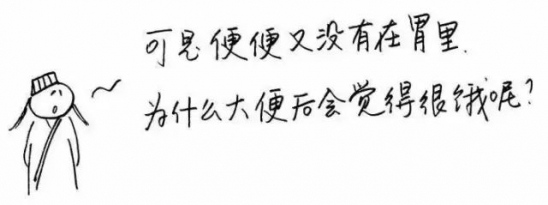 可是便便又没有在胃里.
为什么大便后会觉得很饿呢?